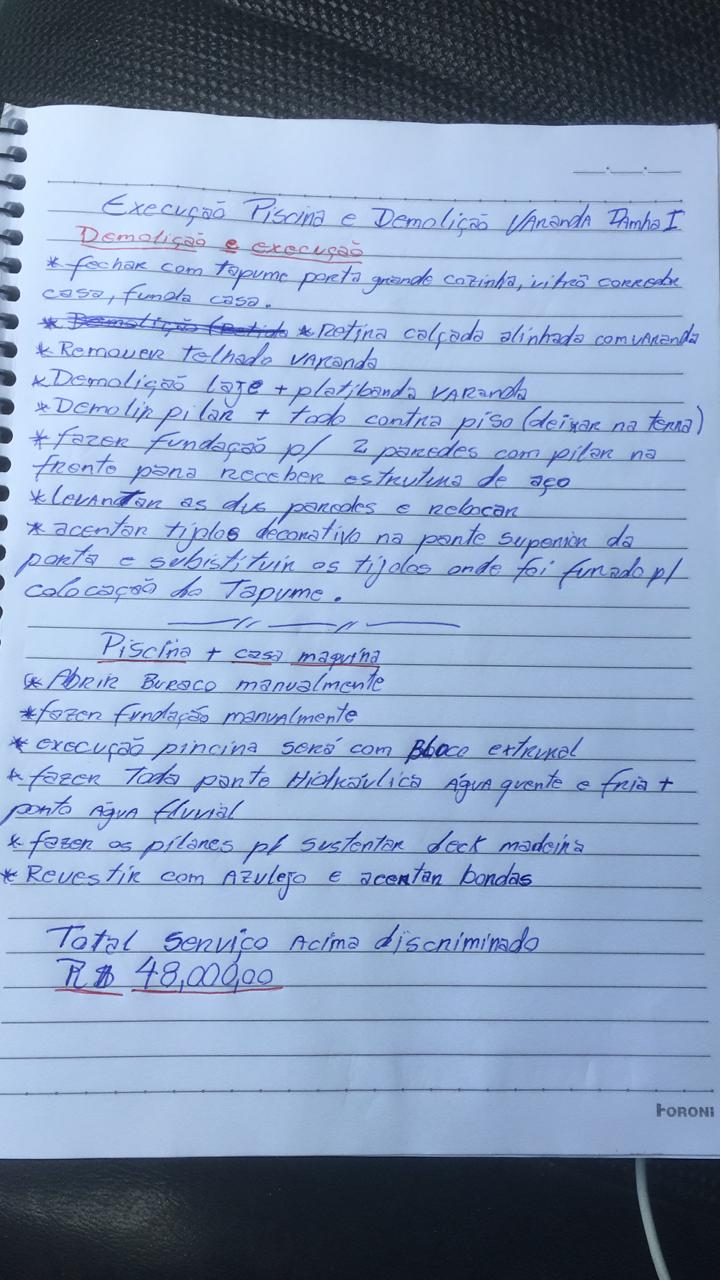 Execução Piscina e Demolição VARANDA DAmha I
Demolição e execução
* fechar com tapume porta grande cozinha, vitrô corredor
casa, funda casa.
* Demolição (Retida * Retirar calçada alinhada com VARANDA
* Remover telhado VARANDA
* Demolição laje + platibanda VARANDA
* Demolir pilar + todo contra piso (deixar na terra)
* fazer fundação p/ 2 paredes com pilar na
frente para receber estrutura de aço
* levantar as dus paredes e rebocar
* acentar tijolos decorativo na parte superior da
porta e subistituir os tijolos onde foi furado p/
colocação do Tapume.
Piscina + casa maquina
* Abrir Buraco manualmente
* fazer fundação manualmente
* execução pincina será com Bloco extrural
* fazer Toda parte Hidráulica Água quente e fria +
ponto Água fluvial
* fazer os pilares p/ sustentar deck madeira
* Revestir com Azulejo e acentar bordas
Total Serviço Acima discriminado
R$ 48,000,00
FORONI